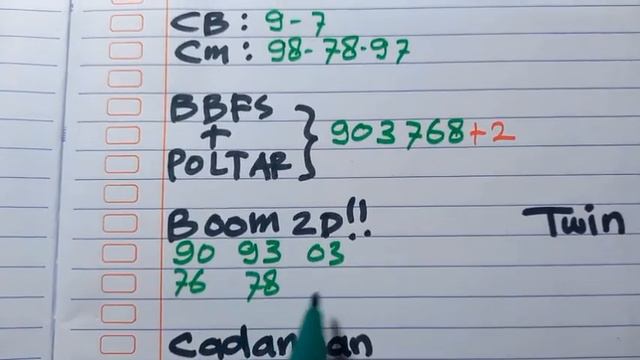 CB : 9-7
Cm : 98-78.97
BBFS
+
POLTAR } 903768+2
Boom 2D!! Twin
90 93 03
76 78